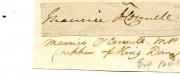 Maurice O'Connell
Maurice O'Connell M.P.
(nephew of King Dan)